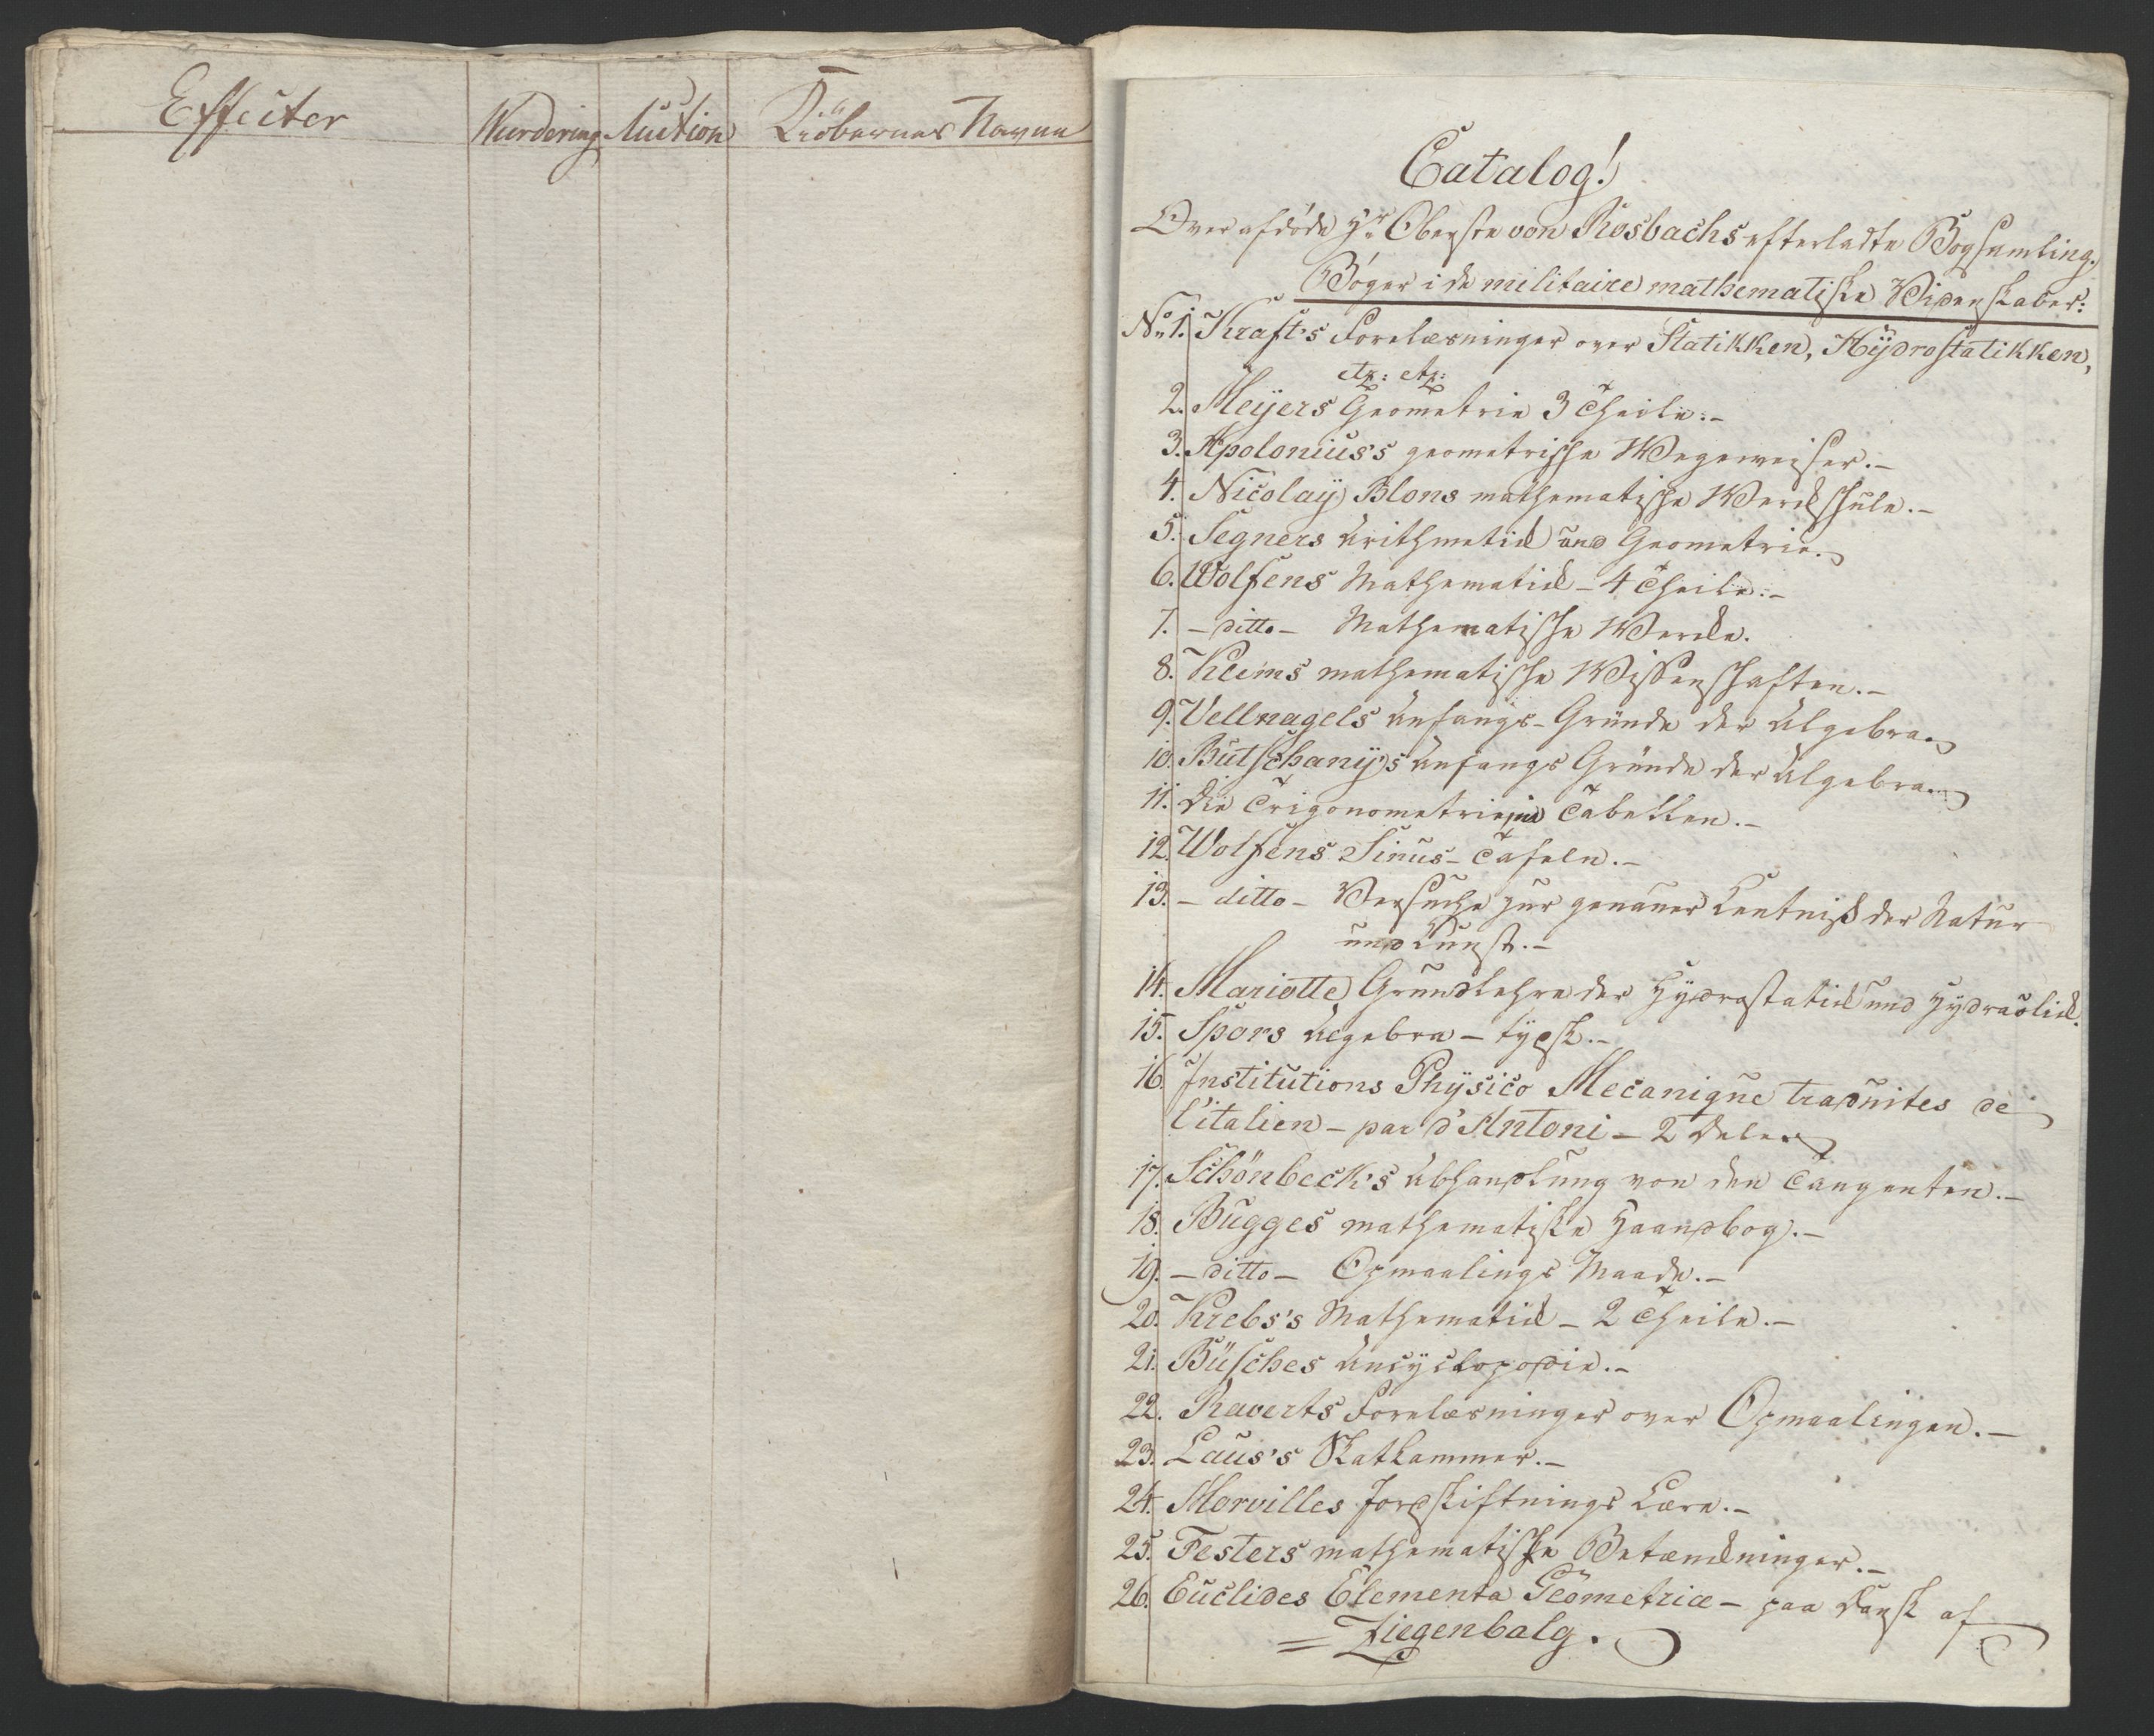 Effecter
Wurdering
Auction
Kiöbernes Navne
Catalog!
Over afdøde Hr Oberste von Rosbachs efterladte Bogsamling.
Bøger i de militaire mathematiske Videnskaber:
No 1. Kraft's Forelæsninger over Statikken, Hÿdrostatikken,
etz: etz:
2. Meÿers Geometrie 3 Theile.-
3. Apolonius's geometrische Wegeweiser.-
4. Nicolaÿ Blons mathematische Werckschule.-
5. Segners Arithmetick und Geometrie.
6. Wolfens Mathematick - 4 Theile.-
7. - ditto - Mathematische Wercke.
8. Klems mathematische Wissenschaften.-
9. Vellnagels Anfangs-Gründe der Algebra.
10. Butschanÿ's Anfangs Gründe der Algebra.
11. Die Trigonometrie in Tabellen.-
12. Wolfens Sinus-Tafeln.-
13. - ditto - Versuche zur genauer Kentniß der Natur
und Kunst.-
14. Mariotte Grundlehre der Hÿdrostatick und Hÿdraolick.
15. Spors Algebra - tÿdsk.-
16. Institutions Phÿsico Mecanique traduites de
l'italien - par d'Antoni - 2 Dele.
17. Schönbeck's Abhandlung von den Tangenten.-
18. Bugges mathematiske Haandbog.-
19. - ditto - Opmaalings Maade.-
20. Krebs's Mathematick - 2 Theile.-
21. Büsches Encÿclopodie.-
22. Raverts Forelæsninger over Opmaalingen.-
23. Laus's Skatkammer.-
24. Morvilles Jordskiftnings Lære.-
25. Festers mathematische Betænckninger.-
26. Euclides Elementa Geometriæ - paa Dansk af
= Ziegenbalg.